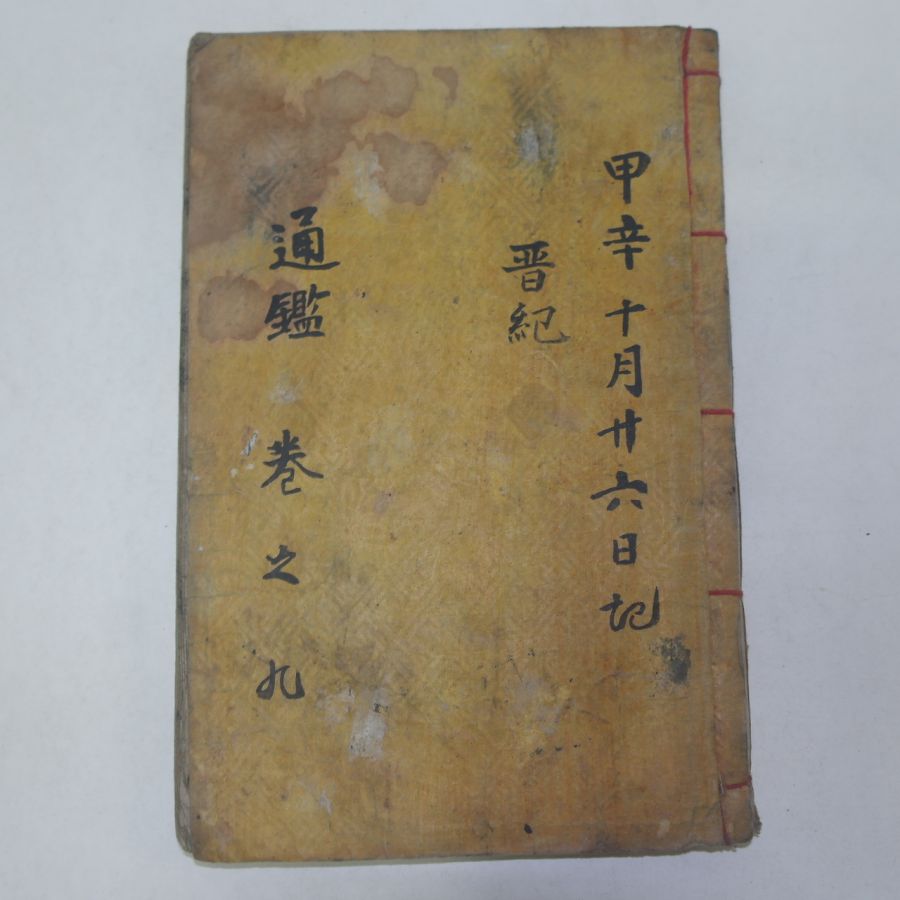 甲辛 十月廿六日記
晋紀
通鑑 卷之九